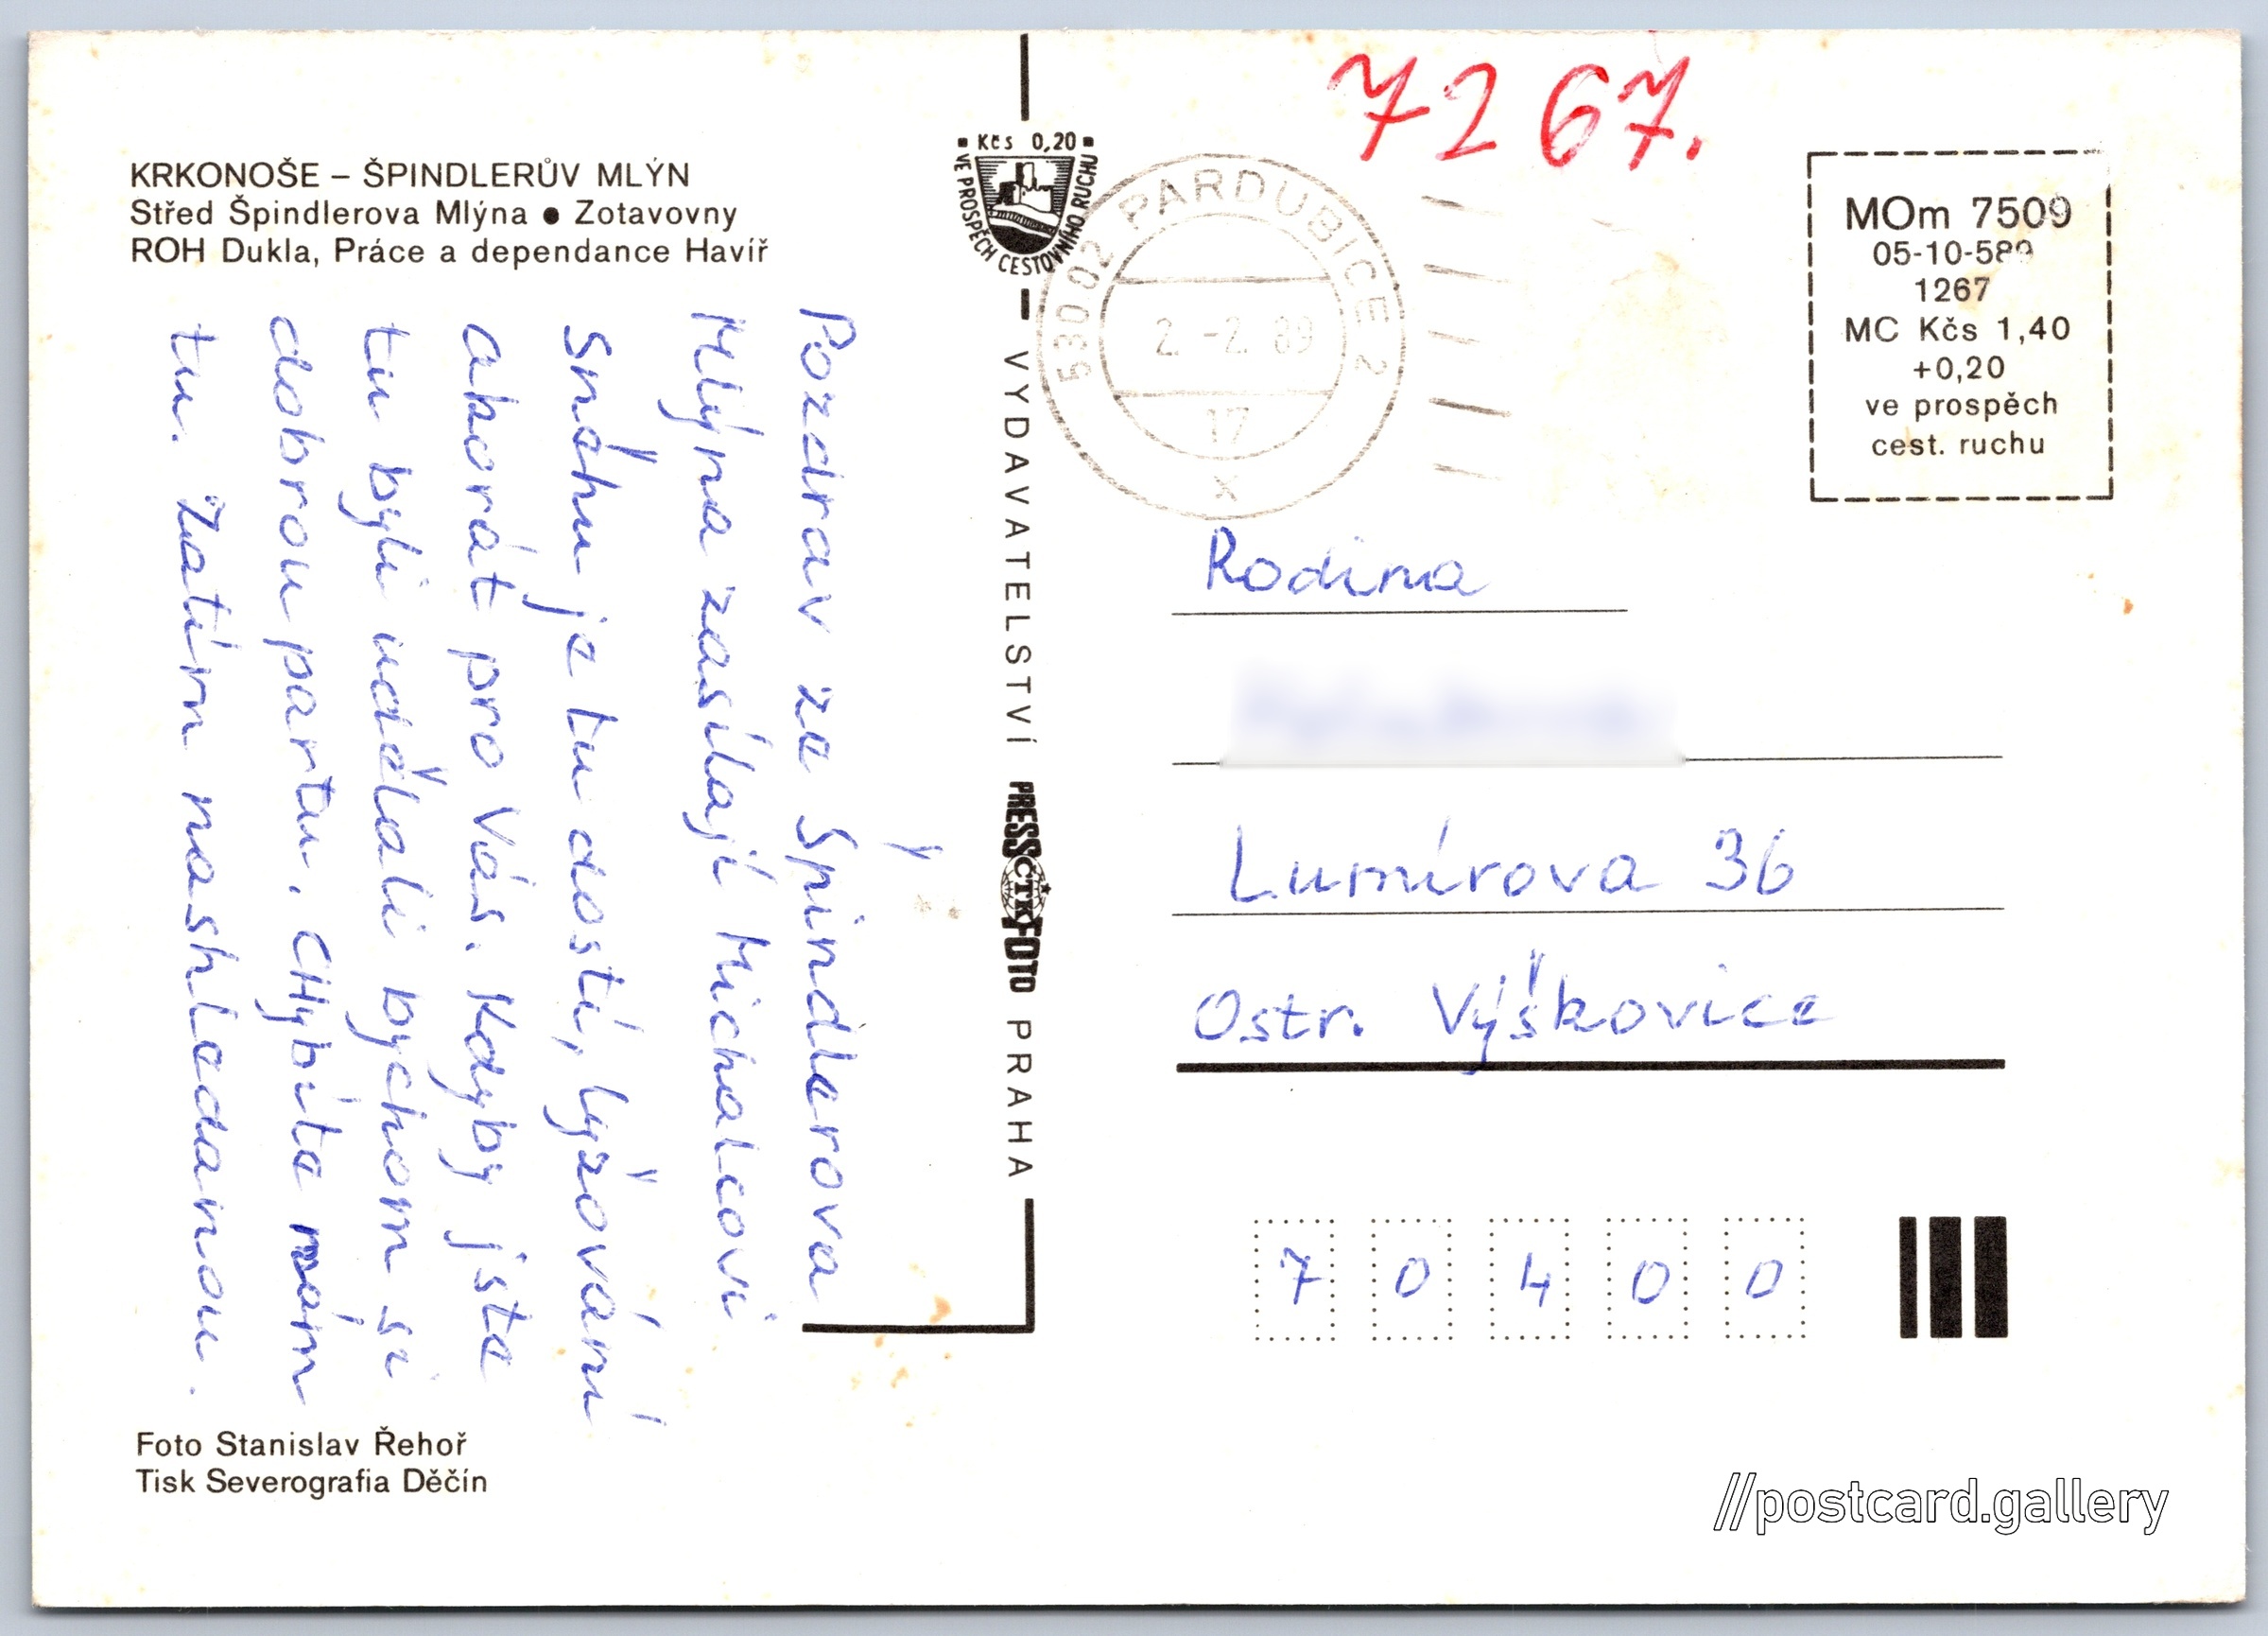 KRKONOŠE – ŠPINDLERŮV MLÝN
Střed Špindlerova Mlýna ● Zotavovny
ROH Dukla, Práce a dependance Havíř
Pozdrav ze Špindlerova
Mlýna zasílají Michalcovi
Sněhu je tu dosti, lyžování
akorát pro Vás. Kdyby jste
tu byli udělali bychom si
dobrou partu. CHybíte nám
tu. Zatím nashledanou.
Foto Stanislav Řehoř
Tisk Severografia Děčín
Kčs 0,20
VE PROSPĚCH CESTOVNÍHO RUCHU
VYDAVATELSTVÍ PRESSFOTO PRAHA
ČTK
7267.
530 02 PARDUBICE 2
2.-2.89
17
x
MOm 7509
05-10-589
1267
MC Kčs 1,40
+0,20
ve prospěch
cest. ruchu
Rodina
Lumírova 36
Ostr. Výškovice
70400
//postcard.gallery